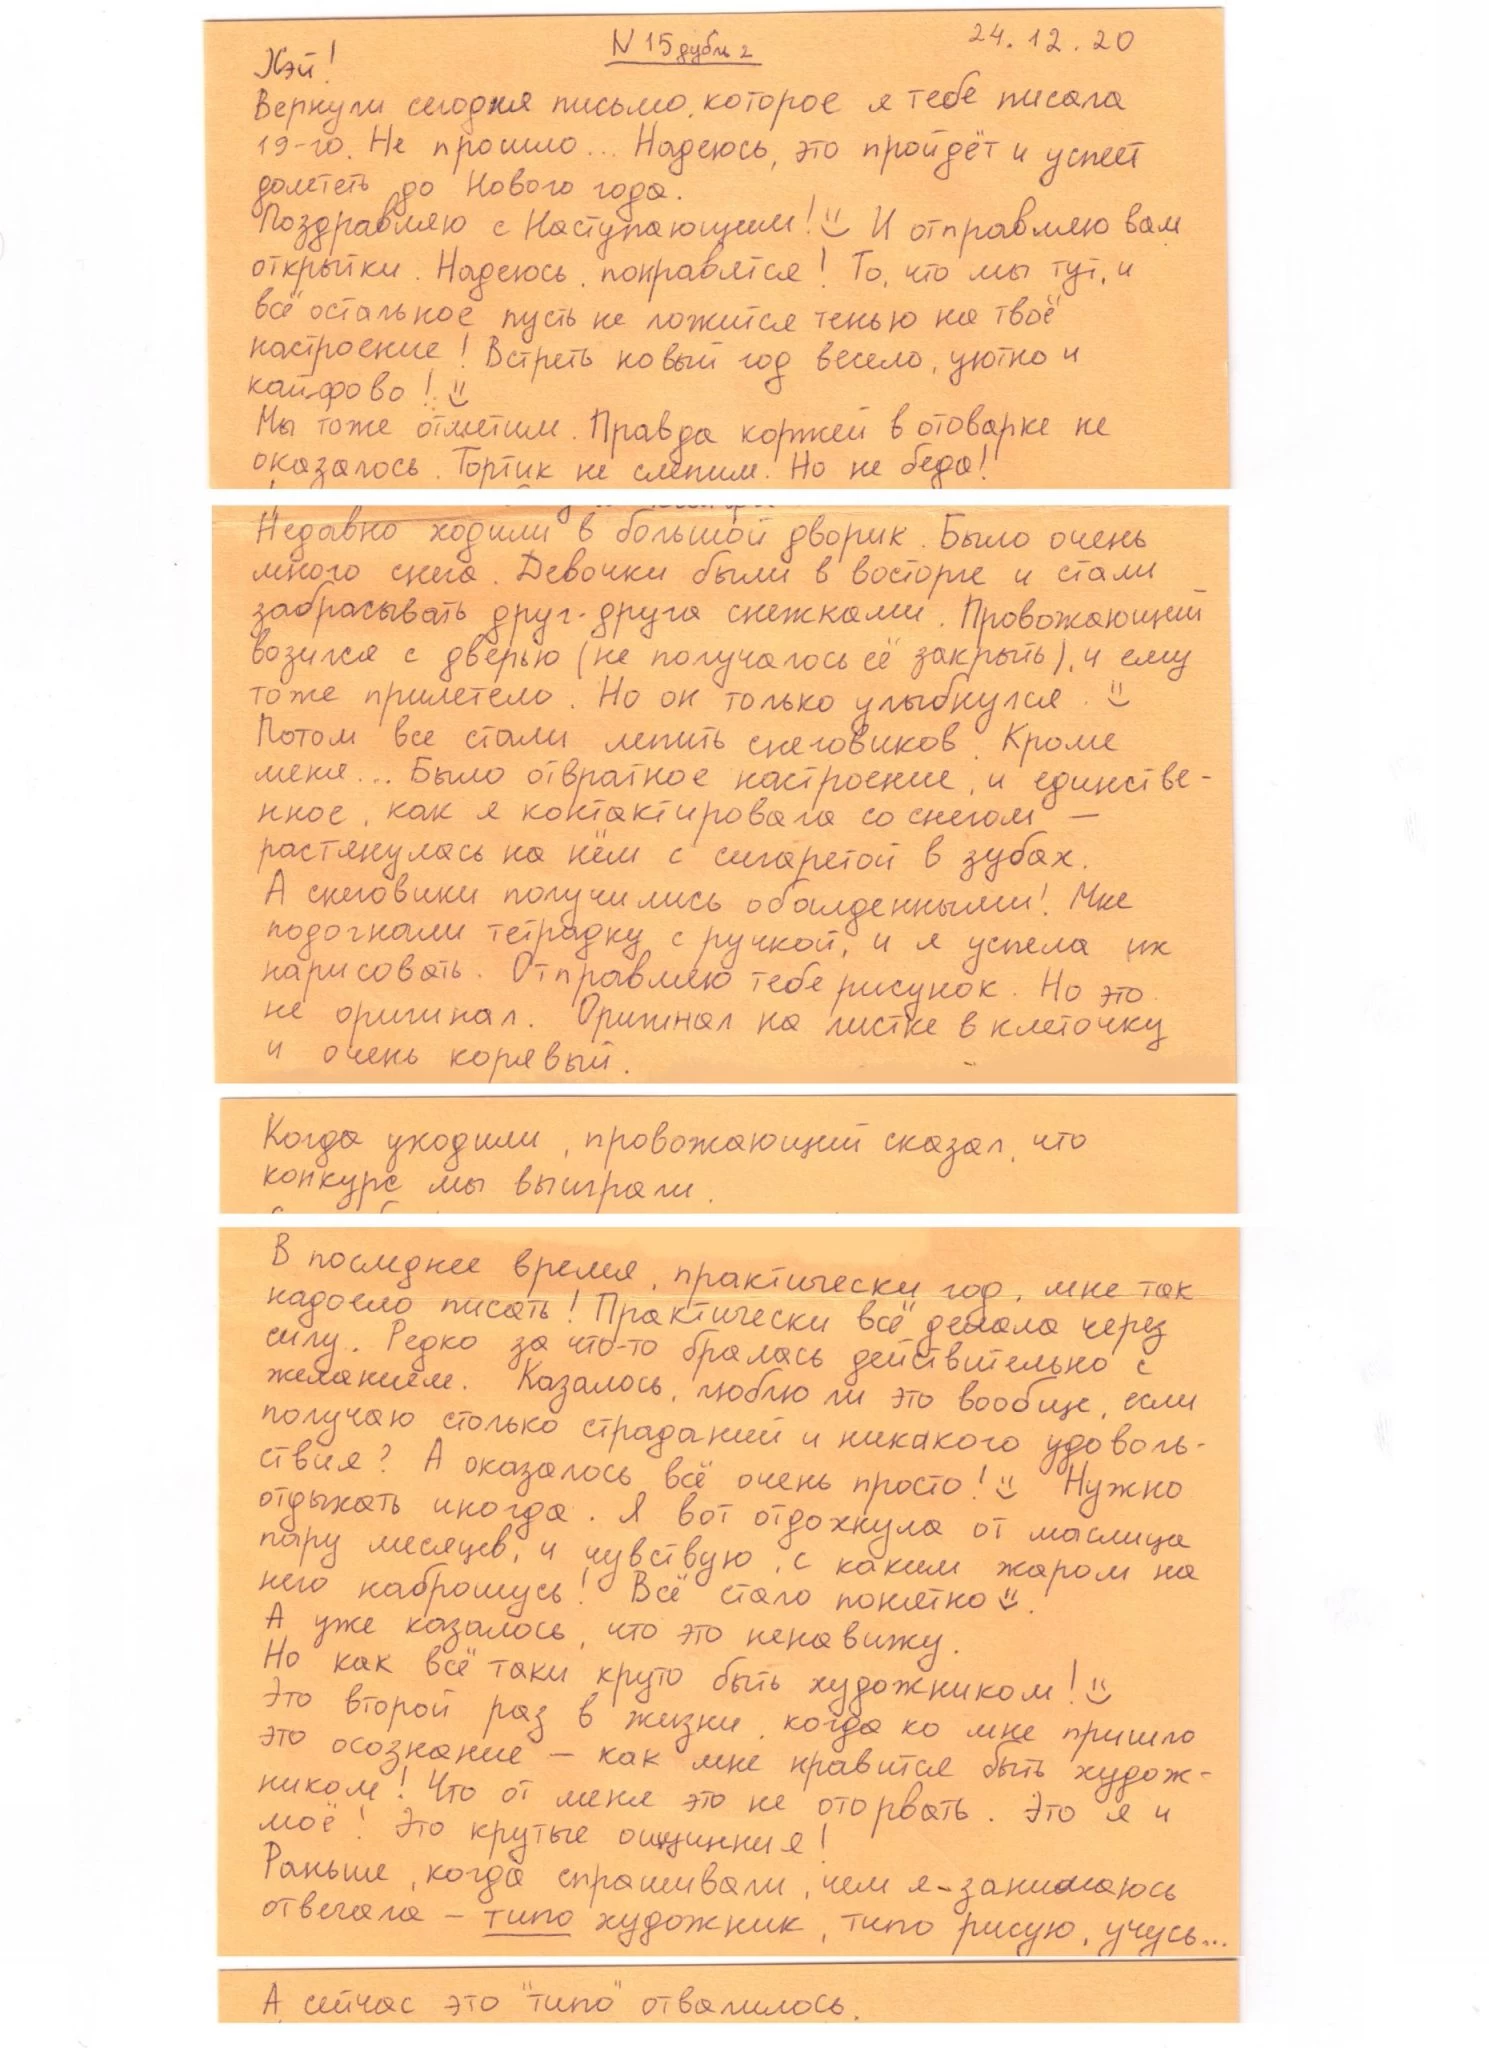 N 15 дубль 2
24.12.20
Хэй!
Вернули сегодня письмо, которое я тебе писала
19-го. Не прошло... Надеюсь, это пройдёт и успеет
долететь до Нового года.
Поздравляю с Наступающим! И отправляю вам
открытки. Надеюсь, понравятся! То, что мы тут, и
всё остальное пусть не ложится тенью на твоё
настроение! Встреть новый год весело, уютно и
кайфово!
Мы тоже отметим. Правда коржей в отоварке не
оказалось. Тортик не слепим. Но не беда!
Недавно ходили в большой дворик. Было очень
много снега. Девочки были в восторге и стали
забрасывать друг-друга снежками. Провожающий
возился с дверью (не получалось её закрыть), и ему
тоже прилетело. Но он только улыбнулся.
Потом все стали лепить снеговиков. Кроме
меня... Было отвратное настроение, и единстве-
нное, как я контактировала со снегом —
растянулась на нём с сигаретой в зубах.
А снеговики получились обалденными! Мне
подогнали тетрадку с ручкой, и я успела их
нарисовать. Отправляю тебе рисунок. Но это
не оригинал. Орижнал на листке в клеточку
и очень корявый.
Когда уходили, провожающий сказал, что
конкурс мы выиграли.
В последнее время, практически год, мне так
надоело писать! Практически всё делала через
силу. Редко за что-то бралась действительно с
желанием. Казалось, люблю ли это вообще, если
получаю столько страданий и никакого удоволь-
ствия? А оказалось всё очень просто! Нужно
отдыхать иногда. Я вот отдохнула от маслица
пару месяцев, и чувствую, с каким жаром на
него наброшусь! Всё стало понятно.
А уже казалось, что это ненавижу.
Но как всё таки круто быть художником!
Это второй раз в жизни, когда ко мне пришло
это осознание — как мне нравится быть худож-
ником! Что от меня это не оторвать. Это я и
моё! Это крутые ощущения!
Раньше, когда спрашивали, чем я занимаюсь
отвечала — типо художник, типо рисую, учусь...
А сейчас это "типо" отвалилось.